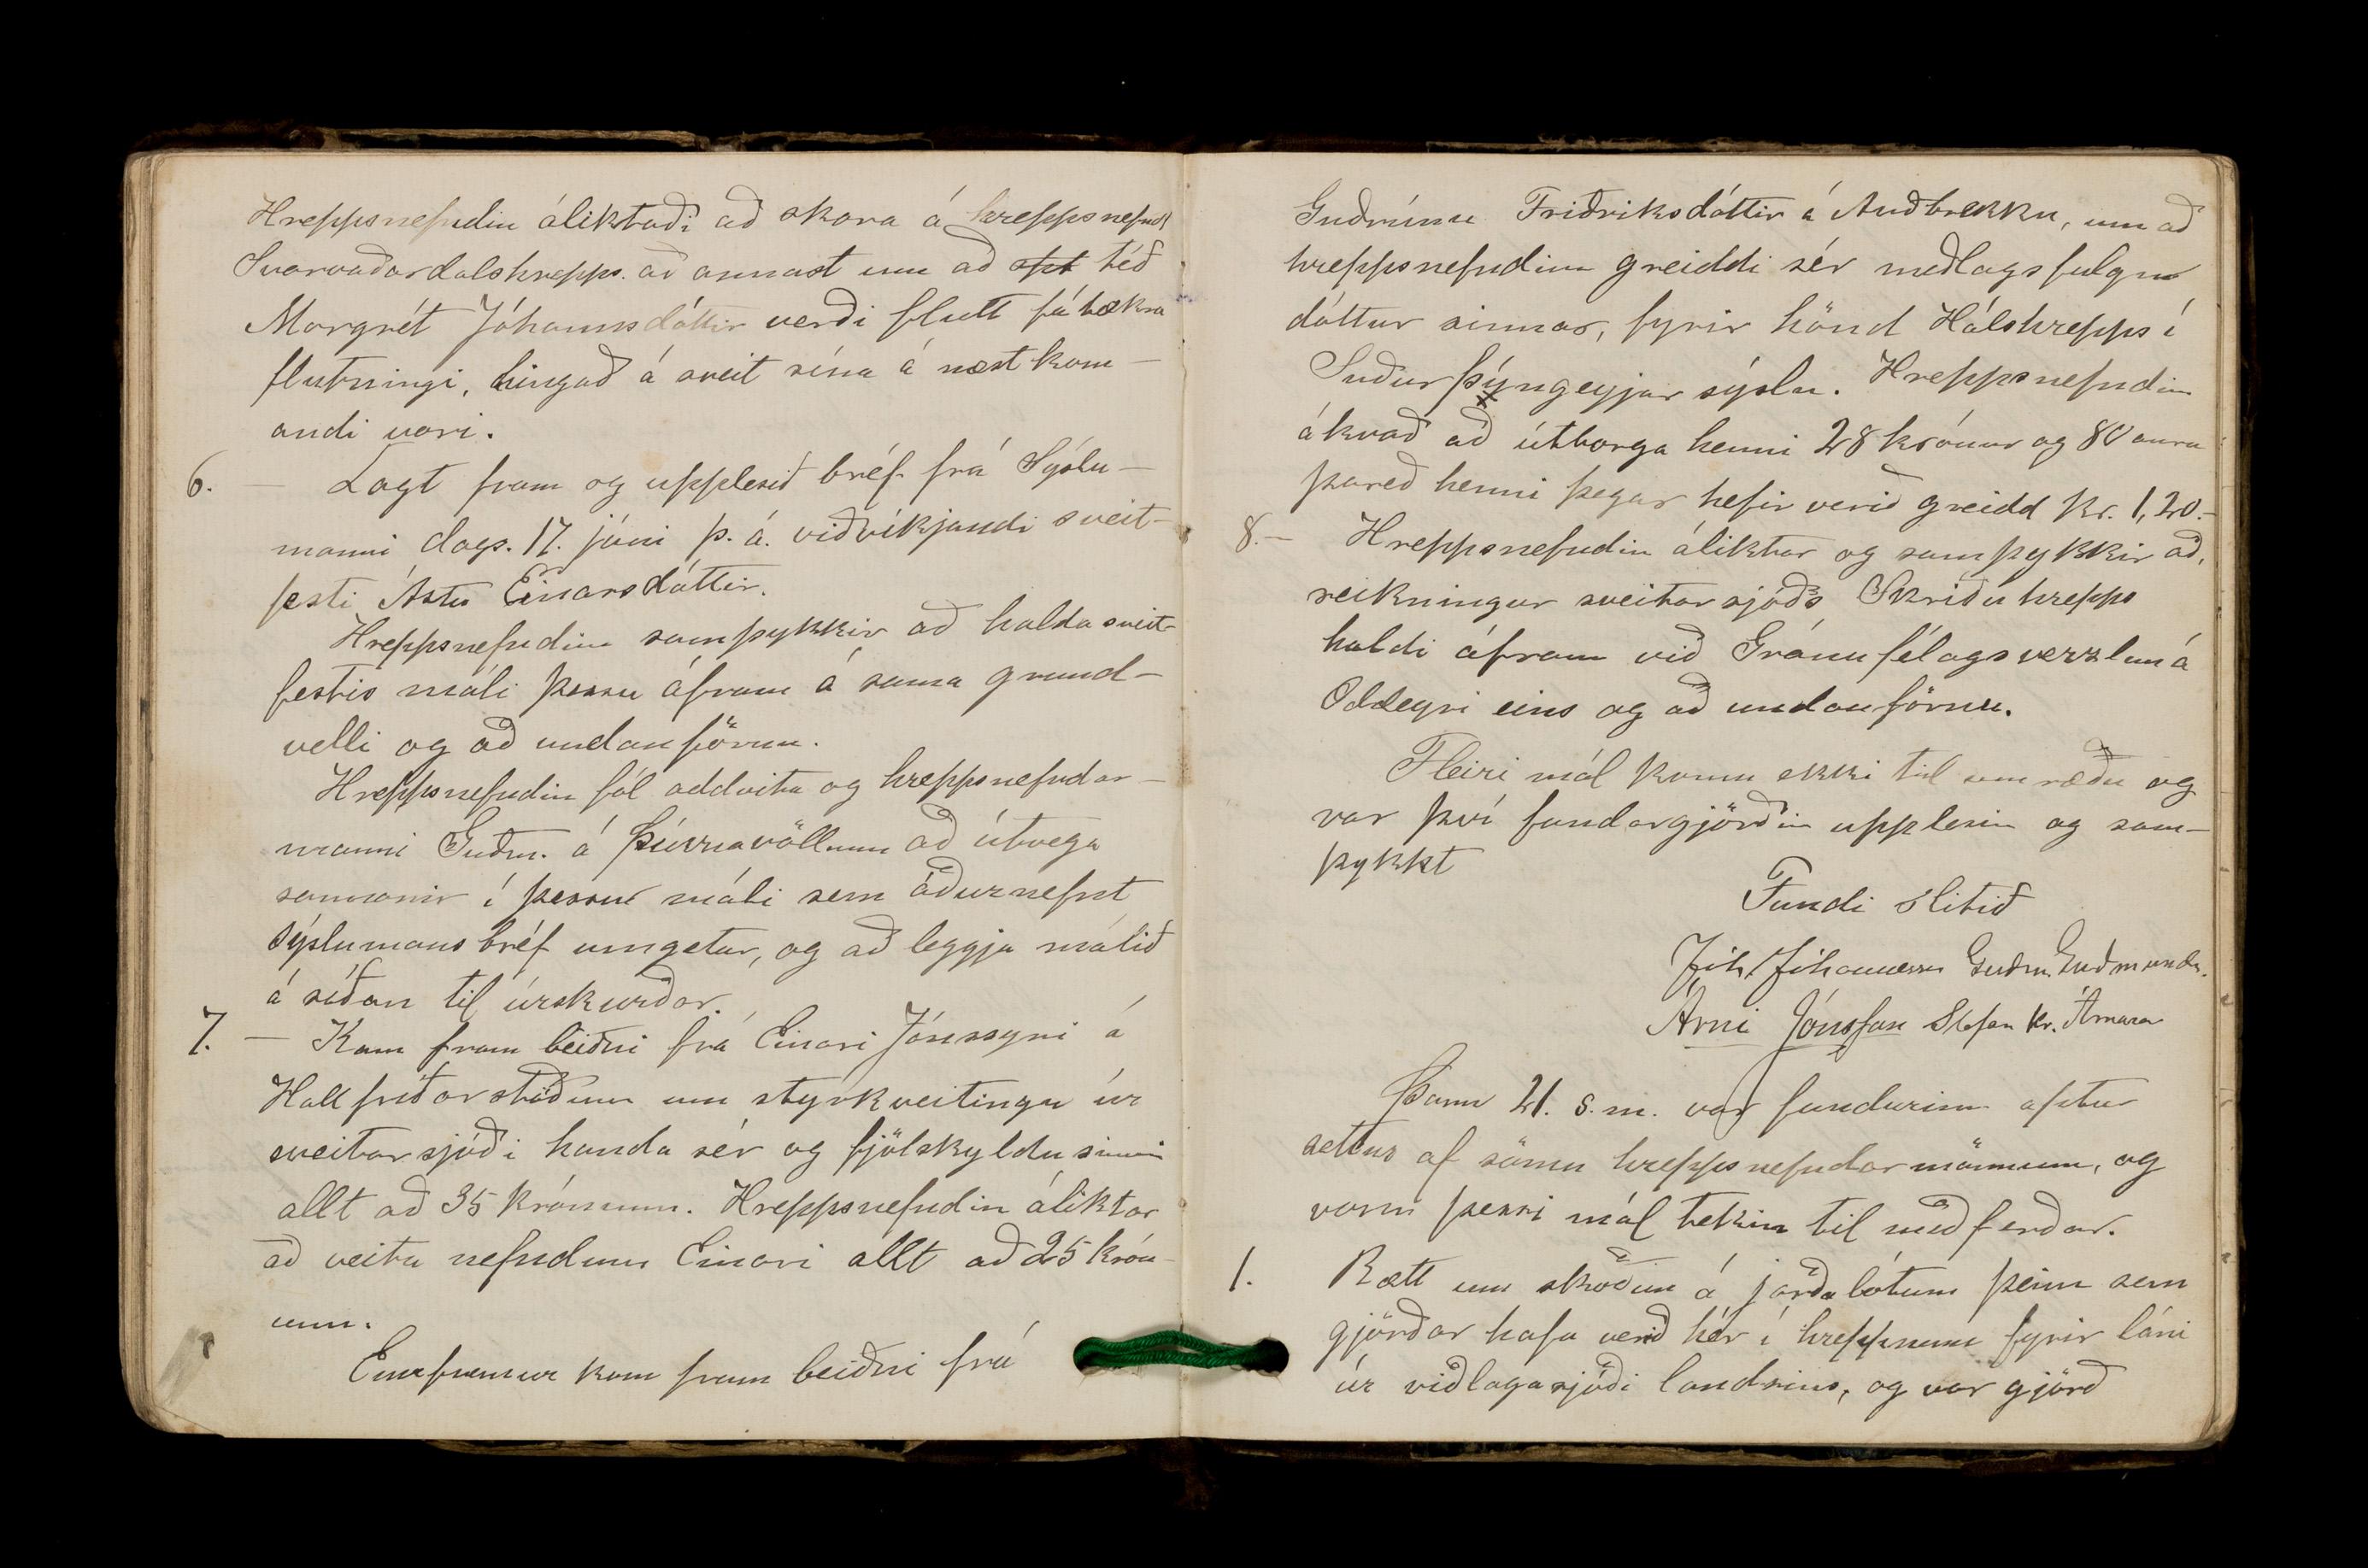 Hreppsnefndin áliktaði að skora á hreppsnefnd
Svarvaðardalshrepps. að annast um að opt téð
Margrét Jóhannsdóttir verði flutt fátækra
flutningi, hingað á sveit sína á næstkom-
andi vori.
6. - Lagt fram og upplesið bréf frá Sýslu-
manni dags. 17. júni þ. á. viðvíkjandi sveit-
festi Ástu Einarsdóttir.
Hreppsnefndin samþykkir að halda sveit-
festis máli þessu áfram á sama grund-
velli og að undanförnu.
Hreppsnefndin fól oddvita og hreppsnefndar-
manni Guðm. á Þúfnavöllum að útvega
sannanir í þessu máli sem áðurnefnt
sýslumans bréf umgetur, og að leggja málið
á síðan til úrskurðar.
7. - Kam fram beiðni frá Einari Jónssyni á
Hallfríðarstöðum um styrkveitingu úr
sveitarsjóði handa sér og fjölskyldu sinni
allt að 35 krónum. Hreppsnefndin áliktar
að veita nefndum Einari allt að 25 krón-
um.
Ennfremur kom fram beiðni frá
Guðrúnu Friðriksdóttir á Auðbrekku, um að
hreppsnefndin greiddi sér meðlagsfúlgu
dóttur sinnar, fyrir hönd Hálshrepps í
Suður þýngeyjar sýslu. Hreppsnefndin
ákvað að útborga henni 28 krónur og 80 aura
þareð henni þegar hefir verið greidd kr. 1,20.-
8. - Hreppsnefndin áliktar og samþykkir að,
reikningur sveitarsjóðs Skriðuhrepps
haldi áfram við Gránufélagsverzlun á
Oddeyri eins og að undanförnu.
Fleiri mál komu ekki til umræðu og
var því fundargjörðin upplesin og sam-
þykkt
Fundi slitið
Jóh. Jóhannesson Guðm. Guðmunds.
Árni Jónsson Stefan Kr. Árnason
Þann 21. s.m. var fundurinn aptur
settur af sömu hreppsnefndarmönnum, og
voru þessi mál tekin til meðferðar.
1. Rætt um skoðun á jarðabótum þeim sem
gjörðar hafa verið hér í hreppnum fyrir láni
úr viðlagasjóði landsins, og var gjörð